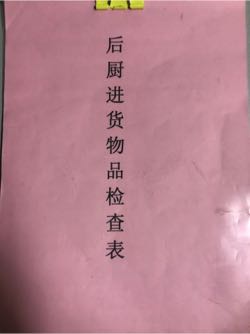 后厨进货物品检查表